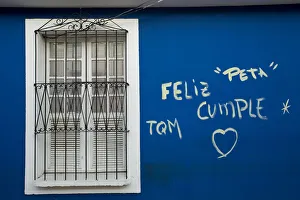 "PETA"
FELIZ
CUMPLE *
TQM